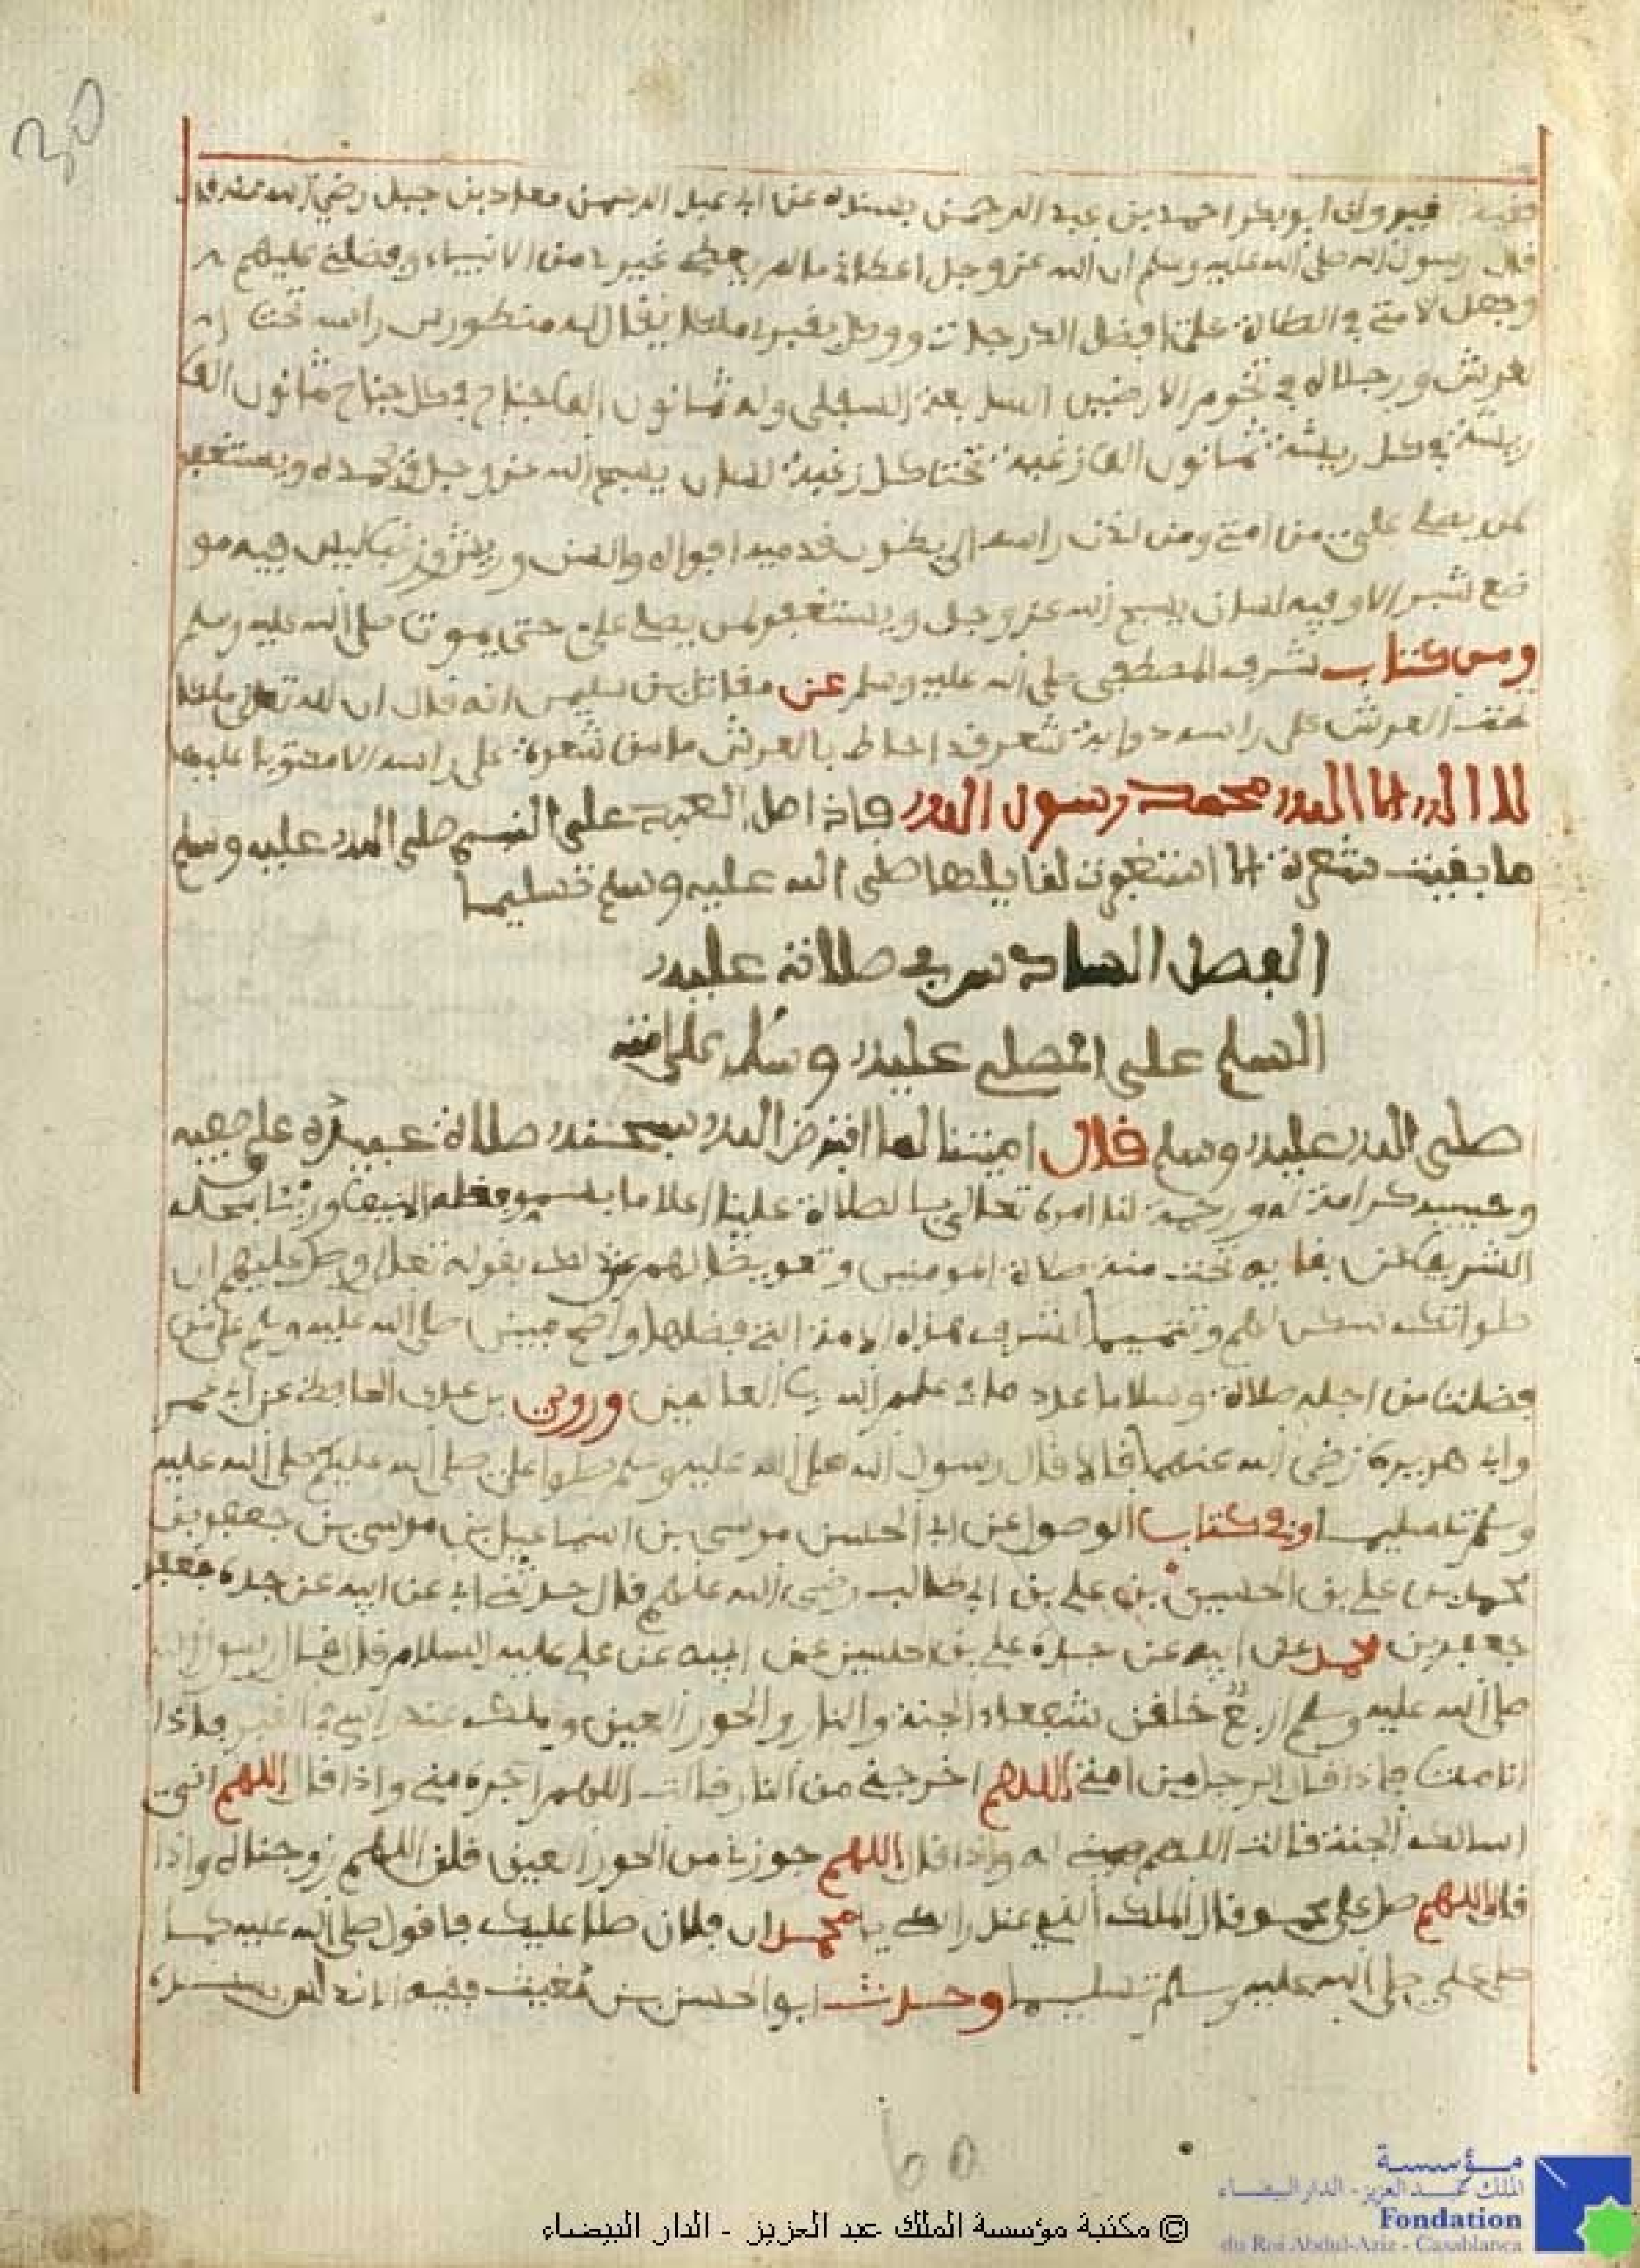 30
فيروى ابو بكر احمد بن عبد الرحمن بسنده عن ابي عبد الرحمن معاذ بن جبل رضي الله عنه قال
قال رسول الله صلى الله عليه وسلم ان الله عز وجل اعطاني ما لم يعط غيري من الانبياء وفضلني عليهم
وجعل لامتي في الصلاة علي افضل الدرجات ووكل بقبري ملكا يقال له منطورس راسه تحت ا
لعرش ورجلاه في تخوم الارضين السابعة السفلى وله ثمانون الف جناح في كل جناح ثمانون الف
ريشة في كل ريشة ثمانون الف زغبة تحت كل زغبة لسان يسبح الله عز وجل ويحمده ويستغفر
لمن يصلي علي من امتي ومن لدن راسه الى بطون قدميه افواه والسن وريش وزغب ليس فيه مو
ضع شبر الا وفيه لسان يسبح الله عز وجل ويستغفر لمن يصلي علي حتى يموت صلى الله عليه وسلم
ومن كتاب شرف المصطفى صلى الله عليه وسلم عن مقاتل بن سليمن انه قال ان لله تعلى ملكا
تحت العرش على راسه ذوابة شعر قد احاط بالعرش ما من شعرة على راسه الا مكتوبا عليها
لا اله الا الله محمد رسول الله فاذا صلى العبد على النبي صلى الله عليه وسلم
ما بقيت شعرة الا استغفرت لقايلها صلى الله عليه وسلم تسليما
الفصل السادس في صلاته عليه
السلم على المصلي عليه وسلم على امته
صلى الله عليه وسلم قال امتنا لما افترض الله سبحنه صلاة عبيده على صفيه
وحبيبه كرامة له ورحمة لنا امره تعالى بالصلاة علينا اعلاما
الشريف عن بقايه تحت منة صلاة المومنين وتعويضا لهم عن ذلك بقوله تعلى وصل عليهم ان
صلواتك سكن لهم وتتميما لشرف هذه الامة التي فضلها واضح مبين صلى الله عليه وسلم على من
فضلنا من اجله صلاة وسلاما عدد ما في علم الله رب العالمين وروى بن عدي الحافظ عن ابي عمر
وابي هريرة رضي الله عنهما قالا قال رسول الله صلى الله عليه وسلم صلوا علي صلى الله عليكم صلى الله عليه
وسلم تسليما وفي كتاب الوصول عن ابي الحسن موسى بن اسماعيل بن موسى بن جعفر بن
محمد بن علي بن الحسين بن علي بن ابي طالب رضي الله عنهم قال حدثني ابي عن ابيه عن جده جعفر
جعفر بن محمد عن ابيه عن جده علي بن الحسين عن ابيه عن علي عليه السلام قال قال رسول الله
صلى الله عليه وسلم اربع خلقن شفعاء الجنة والنار والحور العين وملك عند راسي في القبر فاذا
انا مت فاذا قال الرجل من امتي اللهم اخرجني من النار قالت اللهم اجره مني واذا قال اللهم اني
اسالك الجنة قالت اللهم له واذا قال اللهم جوزنا من الحور العين قلن اللهم زوجنا له واذا
قال اللهم صل على محمد قال الملك الذي عند راسي يا محمد ان فلان صلى عليك فاقول صلى الله عليه كما
صلى علي صلى الله عليه وسلم تسليما وحدث ابو الحسن بن مغيث فقيه الاندلس بسنده
60
© مكتبة مؤسسة الملك عبد العزيز - الدار البيضاء
مؤسسة
الملك عبد العزيز - الدار البيضاء
Fondation
du Roi Abdul-Aziz - Casablanca